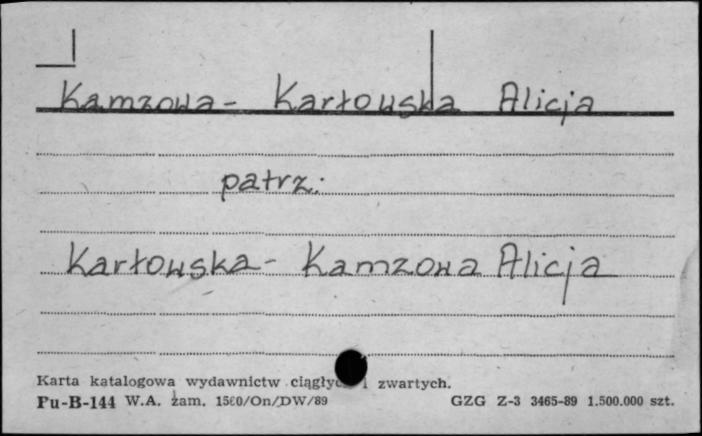 Kamzowa - Karłowska Alicja
patrz:
Karłowska - Kamzowa Alicja
Karta katalogowa wydawnictw ciągłych i zwartych.
Pu-B-144 W.A. zam. 1560/On/DW/89 GZG Z-3 3465-89 1.500.000 szt.